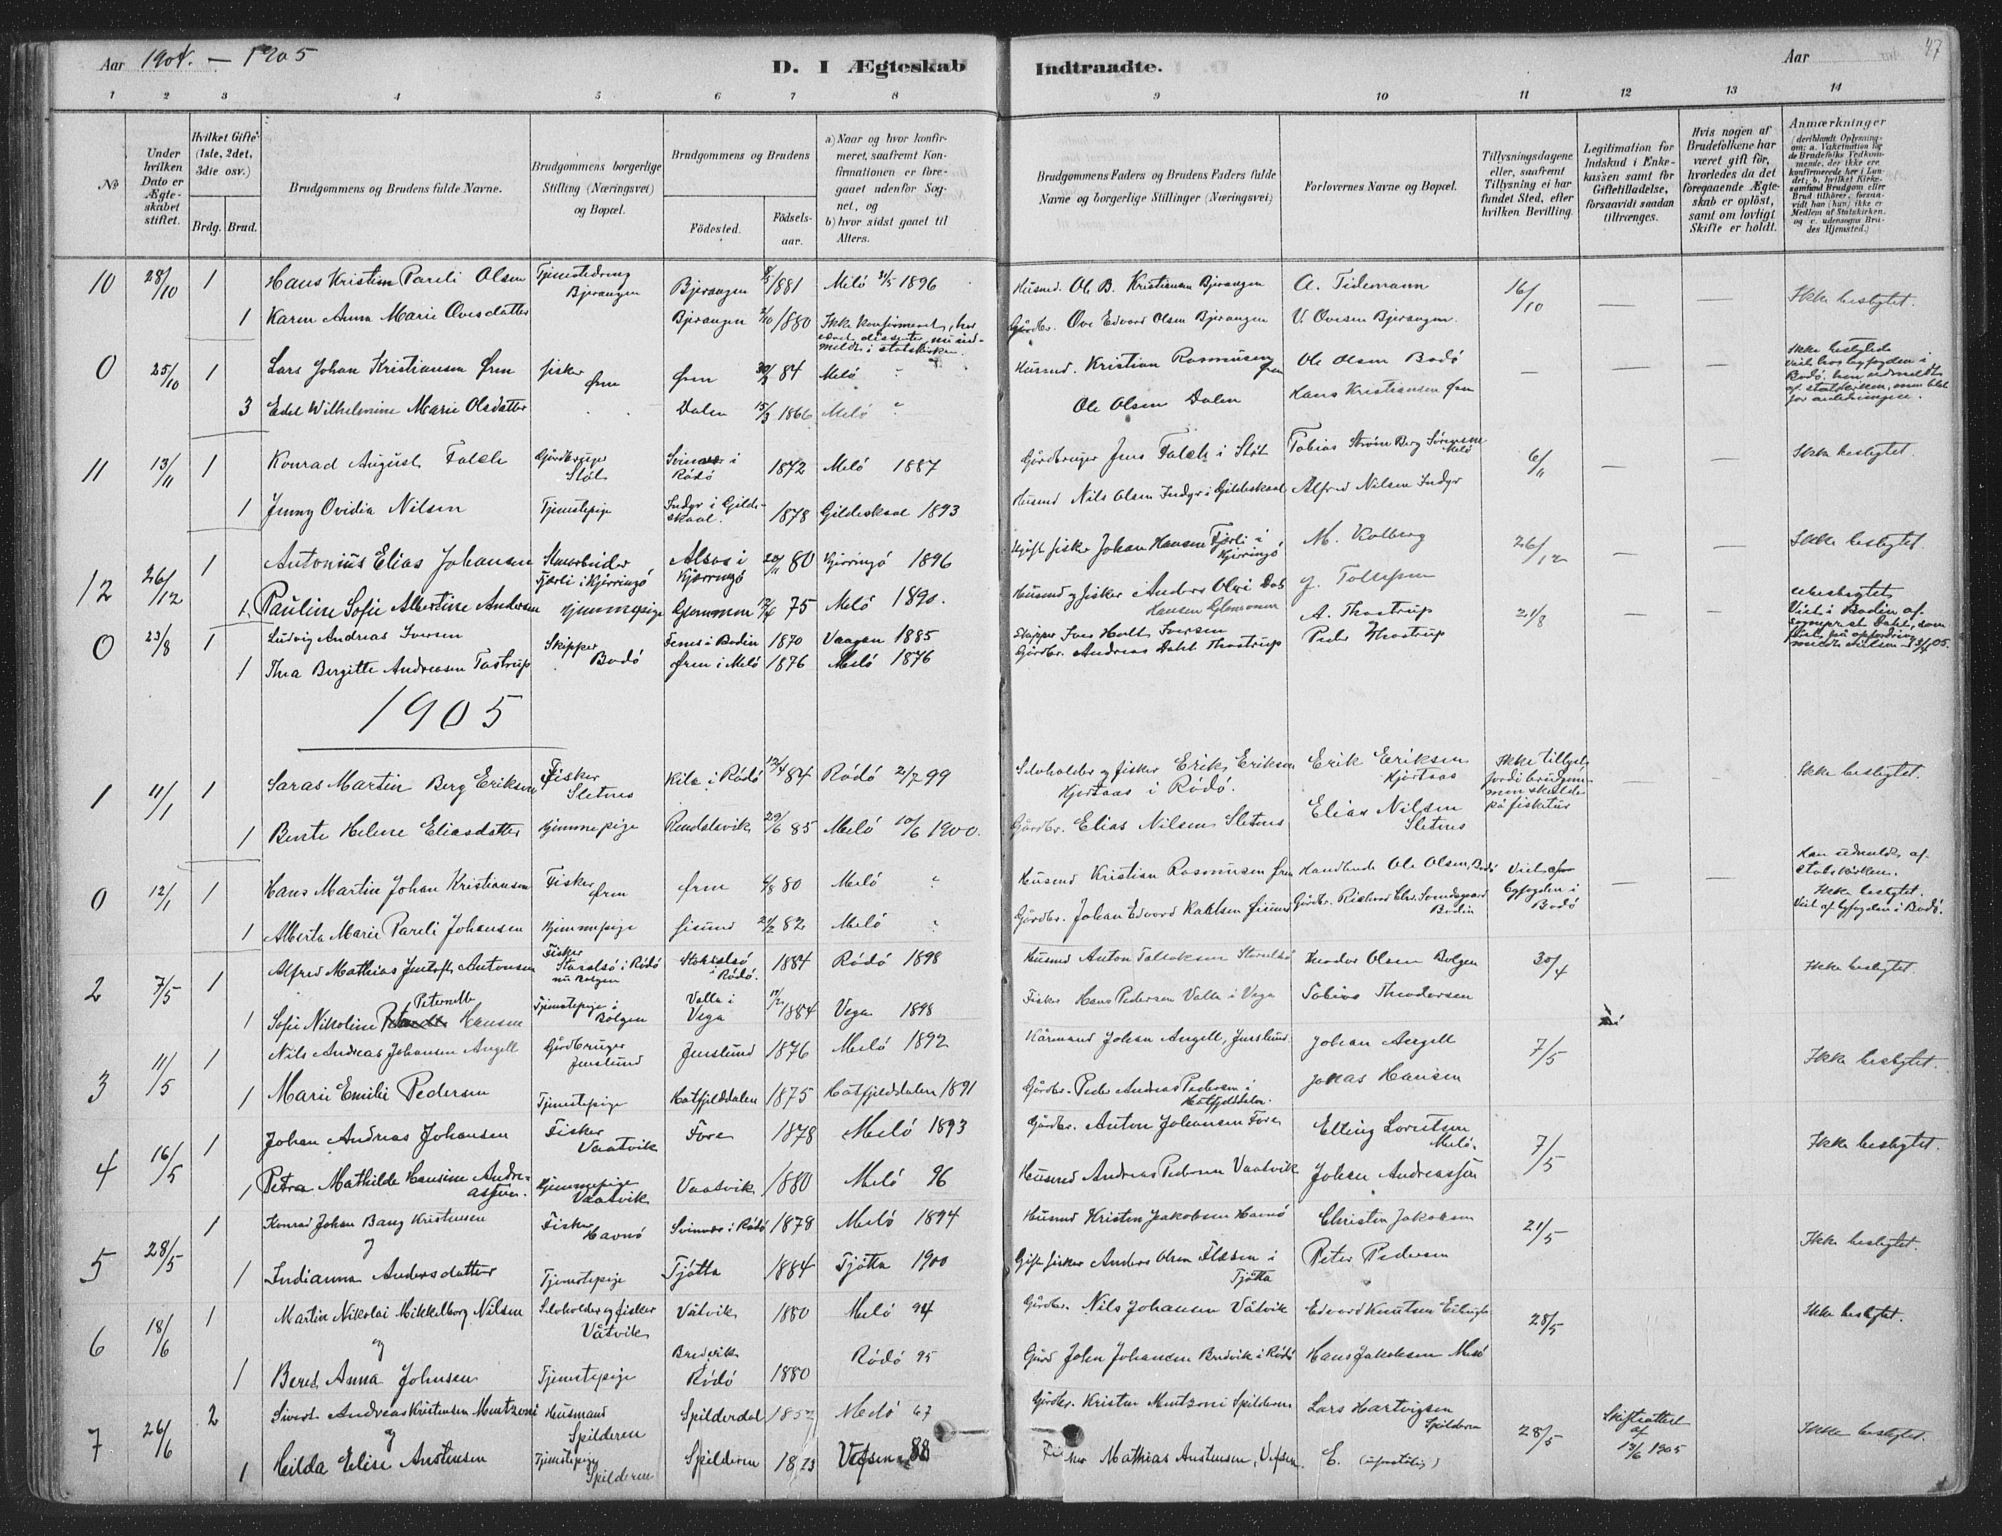 Aar 1904. — 1905
D. I Ægteskab Indtraadte.
Aar
47
1 2 3 4 5 6 7 8 9 10 11 12 13 14
No.
Under hvilken Dato er Ægteskabet stiftet.
Hvilket Gifte (1ste, 2det, 3die osv.)
Brdg. Brud.
Brudgommens og Brudens fulde Navne.
Brudgommens borgerlige Stilling (Næringsvei) og Bopæl.
Brudgommens og Brudens
Fødested.
Fødselsaar.
a) Naar og hvor konfirmeret, saafremt Konfirmationen er foregaaet udenfor Sognet, og
b) hvor sidst gaaet til Alters.
Brudgommens Faders og Brudens Faders fulde Navne og borgerlige Stillinger (Næringsvei)
Forlovernes Navne og Bopæl.
Tillysningsdagene eller, saafremt Tillysning ei har fundet Sted, efter hvilken Bevilling.
Legitimation for Indskud i Enkekassen samt for Giftetilladelse, forsaavidt saadan tiltrænges.
Hvis nogen af Brudefolkene har været gift før, hvorledes da det foregaaende Ægteskab er opløst, samt om lovligt Skifte er holdt.
Anmærkninger
10 28/10 1 Hans Kristian Pareli Olsen Tjenstedreng Bjerangen Bjerangen 1881 Melö 31/5 1896 Husmd. Ole B. Kristiansen Bjerangen A. Tidemann 16/10 — — Ikke beslegtet.
1 Karen Anna Marie Ovesdatter Bjerangen 1880 Ikke konfirmeret, har været dissenter, nu indmeldt i statskirken. Gårdbr. Ove Edvard Olsen Bjerangen U. Ovesen Bjerangen.
0 25/10 1 Lars Johan Kristiansen Ørn fisker Ørn Ørn 84 Melö Husmd. Kristian Rasmusen Ørn Ole Olsen Bodö — — — Ikke beslegtede
3 Edel Wilhelmine Marie Olsdatter Dalen 15/3 1866 Melö Ole Olsen Dalen Hans Kristiansen Ørn
11 13/11 1 Konrad August Falch Gårdbruger Stöt Svinvær i Rödö 1872 Melö 1887 Gårdbruger Jens Falch i Stöt Tobias Ström Berg Sörensen Melö 6/11 — — Ikke beslegtet.
1 Jenny Ovidia Nilsen Tjenstepige Indyr i Gildeskaal. 1878 Gildeskaal 1893 Husmd Nils Olsen Indyr i Gildeskaal Alfred Nilsen Indyr
12 26/12 1 Antonius Elias Johansen Stenarbeider Fjærli i Kjerringö Alsos i Kjærringö 22/11 80 Kjerringö 1896 Gift fisker Johan Hansen Fjærli i Kjerringö M. Kolberg 26/12 — — Ikke beslegtet
1. Pauline Sofie Albertine Andersen hjemmepige Glommen 75 Melö 1890. Husmd og fisker Anders Hansen Glommen J. Tollefsen
0 23/8 1 Ludvig Andreas Iversen Skipper Bodö Femes i Bodin 1870 Vaagan 1885 Skipper Iver Holt Iversen A. Thostrup 21/8
1 Thea Birgitte Andreasen Tostrup Ørn i Melö 1876 Melö 1876 Gårdbr. Andreas Dahl Thostrup Peder Thostrup
1905
1 11/1 1 Saras Martin Berg Eriksen Fisker Sletnes Kila i Rödö 12/4 84 Rödö 2/7 99 Selvholder og fisker Erik Eriksen Kjortaas i Rödö. Erik Eriksen Kjortaas Ikke tillyst fordi brudgommen skulde på fisketur — — Ikke beslegtet.
1 Bente Helene Eliasdatter hjemmepige Rendalsvik 29/6 85 Melö 10/6 1900. Gårdbr. Elias Nilsen Sletnes Elias Nilsen Sletnes
0 12/1 1 Hans Martin Johan Kristiansen Fisker Ørn Ørn 6/8 80 Melö Husmd Kristian Rasmusen Ørn Handlende Ole Olsen, Bodö Viet af byfogden i Bodö — — Han udmeldt af statskirken. Ikke beslegtet. Viet af byfogden i Bodö.
1 Alberta Marie Pareli Johansen hjemmepige Øisund 82 Melö Gårdbr. Johan Edvard Kahlsen Øisund Gårdbr. Richard Chr. Bodin
2 7/5 1 Alfred Mathias Antonsen Fisker Storselsö i Rödö nu Bolgen Storselsö i Rödö. 1884 Rödö 1898 Husmd Anton Tollaksen Storselsö Theodor Olsen Bolgen 30/4 Ikke beslegtet.
1 Sofie Nikoline Peternelle Hansen Tjenstepige i Bolgen Valla i Vega 1884 Vega 1898 Fisker Hans Pedersen Valla i Vega Tobias Theodorsen
3 11/5 1 Nils Andreas Johansen Angell Gårdbruger Jenslund Jenslund 1876 Melö 1892 Kårmand Johan Angell, Jenslund. Johan Angell 7/5 Ikke beslegtet.
1 Marie Emilie Pedersen Tjenstepige Hatfjelddalen 1875 Hatfjelddalen 1891 Gårdbr. Peder Andreas Pedersen i Hatfjelddalen. Jonas Hansen
4 16/5 1 Johan Andreas Johansen Fisker Vaatvik Fore 1878 Melö 1893 Gårdbr. Anton Johansen Fore Elling Loretsen Melö. 7/5 Ikke beslegtet.
1 Petra Mathilde Hansine Andreassen hjemmepige Vaatvik Vaatvik 1880 Melö 96 Husmd Andreas Pedersen Vaatvik Johan Andreassen
5 28/5 1 Konrad Johan Bang Kristensen Fisker Havnö Svinvær i Rödö 1878 Melö 1894 Husmd Kristen Jakobsen Havnö Christen Jakobsen 21/5 Ikke beslegtet.
og
1 Indianna Andersdatter Tjenstepige Tjötta 1884 Tjötta 1900 Gift fisker Anders Olsen Flæsen i Tjötta Peter Pedersen
6 18/6 1 Martin Nikolai Mikkelborg Nilsen Selvholder og fisker Våtvik Våtvik 1880 Melö 94 Gårdbr. Nils Johansen Våtvik Edvard Knutsen 28/5 Ikke beslegtet.
og
1 Beret Anna Johnsen Tjenstepige Bredvik Rödö 1880 Rödö 95 Gård John Johansen Bredvik i Rödö Hans Jakobsen Mesö
7 26/6 2 Sivert Andreas Kristensen Mentzoni Husmand Spilderen Spilderdal 1852 Melö 67 Gårdbr. Kristen Mentzoni Spilderen Lars Hartvigsen Spilderen 28/5 Skifteattest af 13/6 1905 Ikke beslegtet.
og
1 Hilda Elise Austensen Tjenstepige Spilderen Spilderen 1873 Vefsen 88 Mathias Austensen, Vefsen. E. (uforståelig)